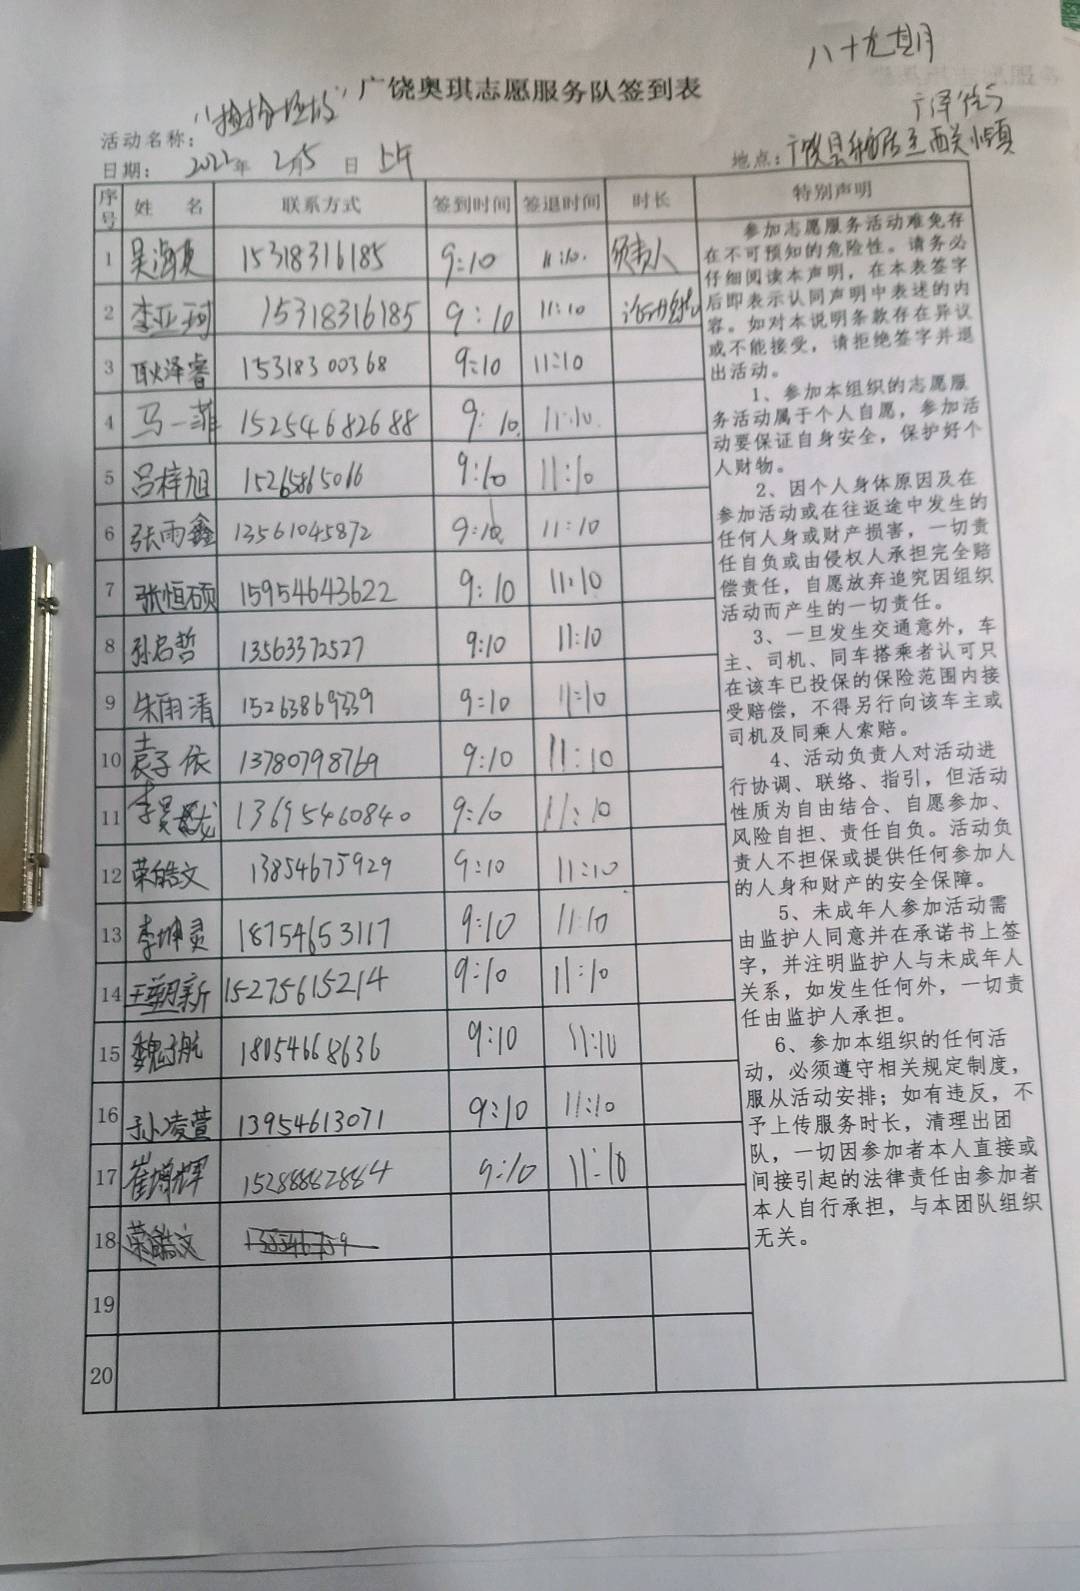 八十九期
广饶奥琪志愿服务队签到表
活动名称：
日期： 2022年 2月5 日 上午
地点：
序号 姓 名 联系方式 签到时间 签退时间 时长 特别声明
1 吴海夏 15318316185 9:10 11:10. 负责人
2 李亚珂 15318316185 9:10 11:10
3 耿泽睿 15318300368 9:10 11:10
4 马一菲 15254682688 9:10. 11:10.
5 吕梓旭 15265865066 9:10 11:10
6 张雨鑫 13561045872 9:10 11:10
7 张恒硕 15954643622 9:10 11:10
8 孙启哲 13563372527 9:10 11:10
9 朱雨清 15263869339 9:10 11:10
10 袁子依 13780798769 9:10 11:10
11 李昊龙 13695460840 9:10 11:10
12 荣皓文 13854675929 9:10 11:10
13 李坤灵 18754653117 9:10 11:10
14 王塑新 15275615214 9:10 11:10
15 魏子航 18054668636 9:10 11:10
16 孙凌萱 13954613071 9:10 11:10
17 崔增辉 15288882884 9:10 11:10
18 荣皓文
19
20
参加志愿服务活动难免存
在不可预知的危险性。请务必
仔细阅读本声明，在本表签字
后即表示认同声明中表述的内
容。如对本说明条款存在异议
或不能接受，请拒绝签字并退
出活动。
1、参加本组织的志愿服
务活动属于个人自愿，参加活
动要保证自身安全，保护好个
人财物。
2、因个人身体原因及在
参加活动或在往返途中发生的
任何人身或财产损害，一切责
任自负或由侵权人承担完全赔
偿责任，自愿放弃追究因组织
活动而产生的一切责任。
3、一旦发生交通意外，车
主、司机、同车搭乘者认可只
在该车已投保的保险范围内接
受赔偿，不得另行向该车主或
司机及同乘人索赔。
4、活动负责人对活动进
行协调、联络、指引，但活动
性质为自由结合、自愿参加、
风险自担、责任自负。活动负
责人不担保或提供任何参加人
的人身和财产的安全保障。
5、未成年人参加活动需
由监护人同意并在承诺书上签
字，并注明监护人与未成年人
关系，如发生任何外，一切责
任由监护人承担。
6、参加本组织的任何活
动，必须遵守相关规定制度，
服从活动安排；如有违反，不
予上传服务时长，清理出团
队，一切因参加者本人直接或
间接引起的法律责任由参加者
本人自行承担，与本团队组织
无关。